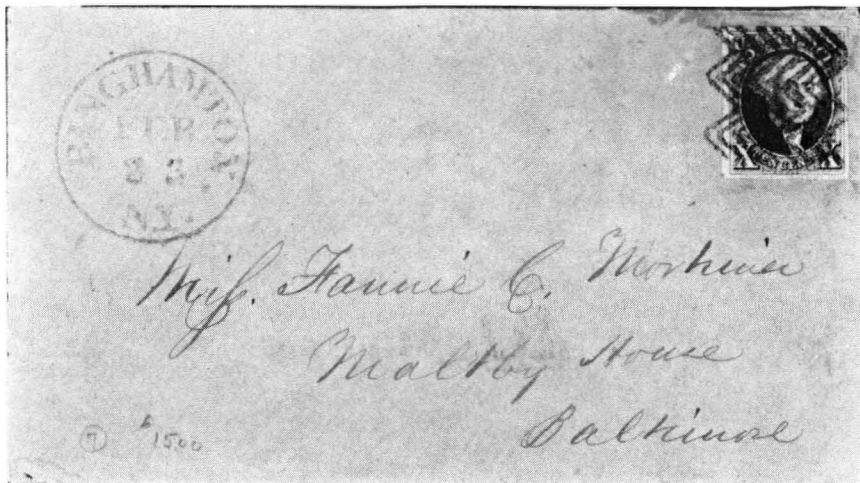 BINGHAMTON
FEB
N.Y.
X X
Miſs. Fannie C. Mortimer
Maltby House
Baltimore
7 $1500